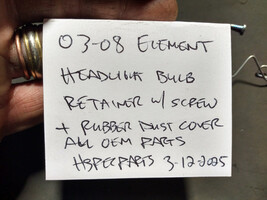 03-08 ELEMENT
HEADLIGHT BULB
RETAINER W/ SCREW
+ RUBBER DUST COVER
ALL OEM PARTS
HSPECPARTS 3-12-2025